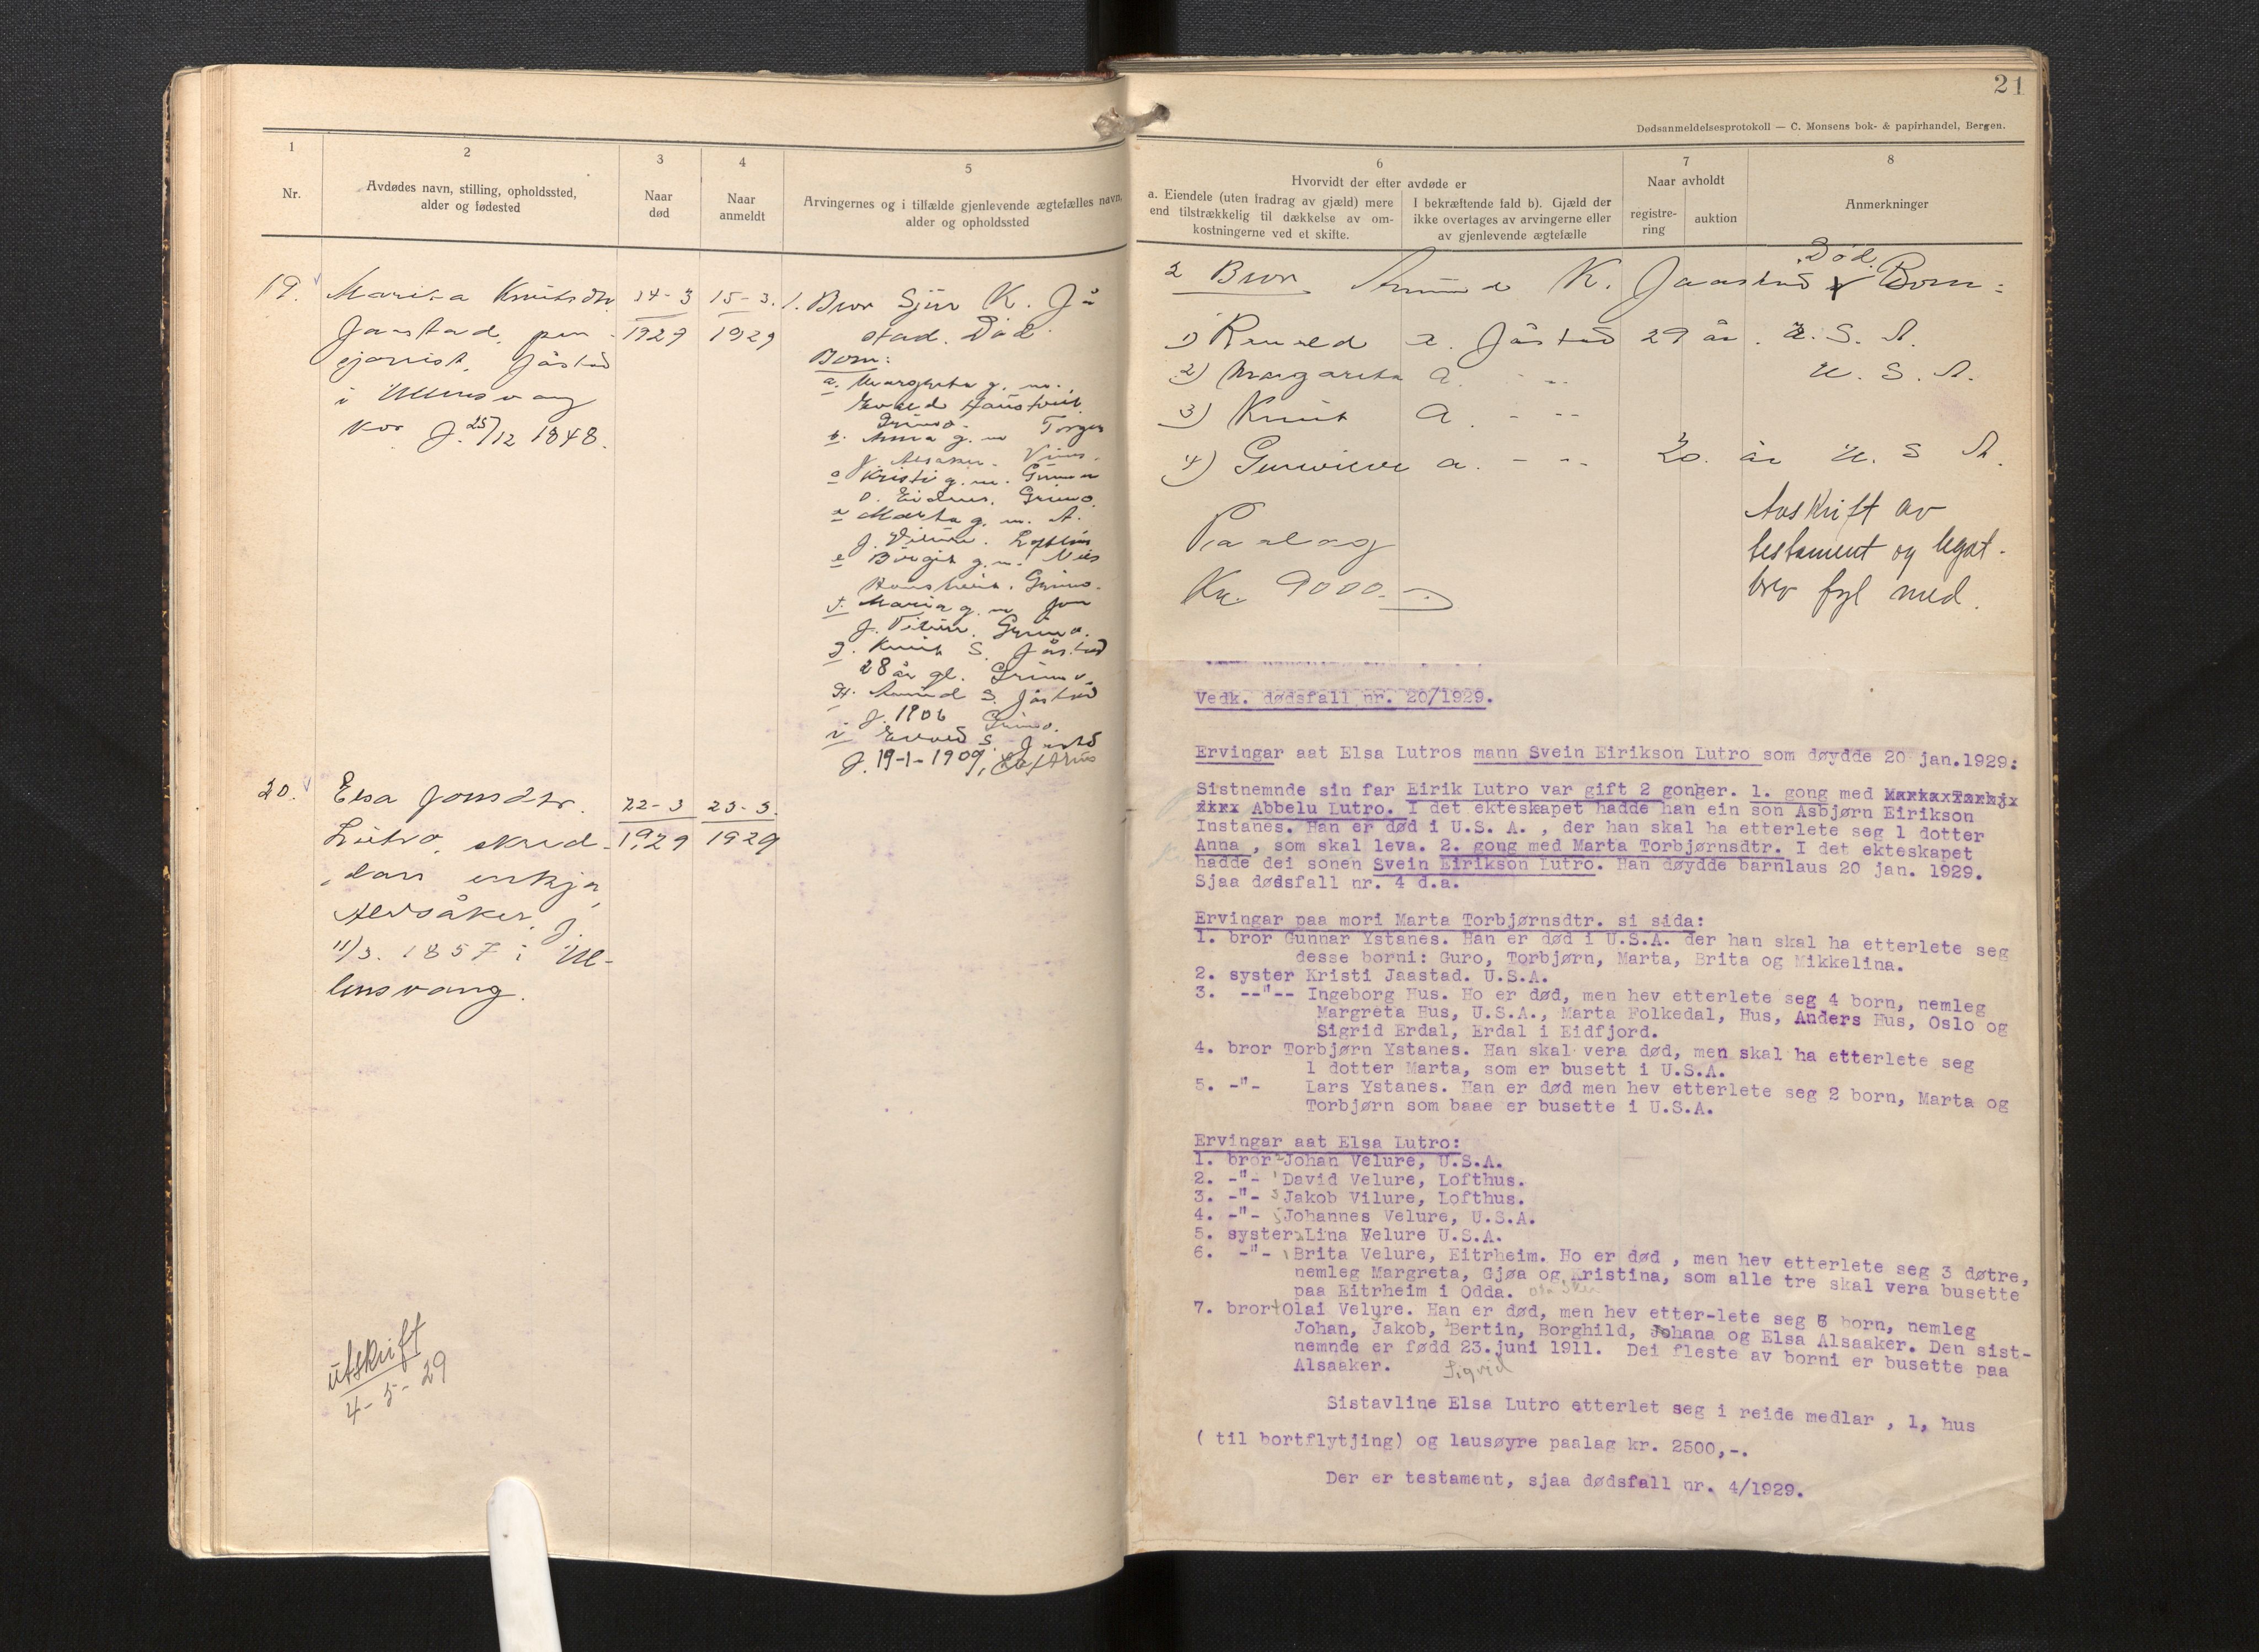 21
Dødsanmeldelsesprotokoll — C. Monsens bok- & papirhandel, Bergen.
1
Nr.
2
Avdødes navn, stilling, opholdssted,
alder og fødested
3
Naar
død
4
Naar
anmeldt
5
Arvingernes og i tilfælde gjenlevende ægtefælles navn,
alder og opholdssted
6
Hvorvidt der efter avdøde er
a. Eiendele (uten fradrag av gjæld) mere
end tilstrækkelig til dækkelse av om-
kostningerne ved et skifte.
I bekræftende fald b). Gjæld der
ikke overtages av arvingerne eller
av gjenlevende ægtefælle
7
Naar avholdt
registre-
ring
auktion
8
Anmerkninger
19.
Knutsdtr.
Jaastad, pen-
sjonist, Jåstad
i Ullensvang
J. 25/12 1848.
14-3
1929
15-3.
1929
1. Bror Sjur K. Jå-
stad. Død.
Born:
a. Margreta g. m.
b. Anna g. m. Torger
c. Kristi g. m. Gunnar
O. Eidnes. Grimo
d. Marta g. m. A.
J. Vilure. Lofthus
e. Birgit g. m. Nils
f. Maria g. m. Jon
J. Vilure. Grimo.
g. Knut S. Jåstad
28 år gl. Grimo.
H. Amund S. Jåstad
J. 1906 Grimo.
i S. Jåstad
J. 19-1-1909,
20.
Elsa Jonsdtr.
Lutro, skred-
dar enkja,
Alsåker. J.
11/3. 1857 i Ul-
lensvang.
22-3
1929
23-3.
1929
utskrift
4-5-29
2 Bror Amund K. Jaastad Død. Born:
1) A. Jåstad 29 år. U. S. A.
2) Margareta A. - -- U. S. A.
3) Knut A. - --
4) A. - -- 20. år U. S. A.
Paalag
Kr. 9000.-
Avskrift av
testament og legat-
brev fyl med.
Vedk. dødsfall nr. 20/1929.
Ervingar aat Elsa Lutros mann Svein Eirikson Lutro som døydde 20 jan.1929:
Sistnemnde sin far Eirik Lutro var gift 2 gonger. 1. gong med
Abbelu Lutro. I det ekteskapet hadde han ein son Asbjørn Eirikson
Instanes. Han er død i U.S. A. , der han skal ha etterlete seg 1 dotter
Anna , som skal leva. 2. gong med Marta Torbjørnsdtr. I det ekteskapet
hadde dei sonen Svein Eirikson Lutro. Han døydde barnlaus 20 jan. 1929.
Sjaa dødsfall nr. 4 d.a.
Ervingar paa mori Marta Torbjørnsdtr. si sida:
1. bror Gunnar Ystanes. Han er død i U.S.A. der han skal ha etterlete seg
desse borni: Guro, Torbjørn, Marta, Brita og Mikkelina.
2. syster Kristi Jaastad. U.S.A.
3. --"-- Ingeborg Hus. Ho er død, men hev etterlete seg 4 born, nemleg
Margreta Hus, U.S.A., Marta Folkedal, Hus, Anders Hus, Oslo og
Sigrid Erdal, Erdal i Eidfjord.
4. bror Torbjørn Ystanes. Han skal vera død, men skal ha etterlete seg
1 dotter Marta, som er busett i U.S.A.
5. -"- Lars Ystanes. Han er død men hev etterlete seg 2 born, Marta og
Torbjørn som baae er busette i U.S.A.
Ervingar aat Elsa Lutro:
1. bror Johan Velure, U.S.A.
2. -"- David Velure, Lofthus.
3. -"- Jakob Vilure, Lofthus.
4. -"- Johannes Velure, U.S.A.
5. syster Lina Velure U.S.A.
6. -"- Brita Velure, Eitrheim. Ho er død , men hev etterlete seg 3 døtre,
nemleg Margreta, Gjøa og Kristina, som alle tre skal vera busette
paa Eitrheim i Odda.
7. bror Olai Velure. Han er død, men hev etter-lete seg 6 born, nemleg
Johan, Jakob, Bertin, Borghild, Johana og Elsa Alsaaker. Den sist-
nemnde er fødd 23.juni 1911. Dei fleste av borni er busette paa
Alsaaker. Sigvid
Sistavline Elsa Lutro etterlet seg i reide medlar , 1, hus
( til bortflytjing) og lausøyre paalag kr. 2500,-.
Der er testament, sjaa dødsfall nr. 4/1929.